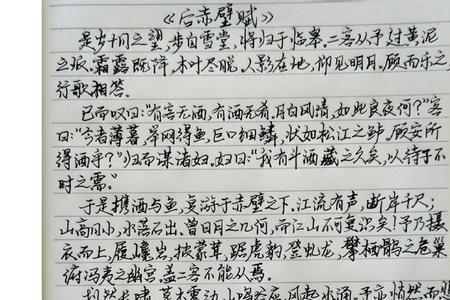 《后赤壁赋》
是岁十月之望,步自雪堂,将归于临皋。二客从予过黄泥
之坂。霜露既降,木叶尽脱。人影在地,仰见明月。顾而乐之,
行歌相答。
已而叹曰:“有客无酒,有酒无肴,月白风清,如此良夜何?”客
曰:“今者薄暮,举网得鱼,巨口细鳞,状如松江之鲈。顾安所
得酒乎?”归而谋诸妇。妇曰:“我有斗酒,藏之久矣,以待子不
时之需。”
于是携酒与鱼,复游于赤壁之下。江流有声,断岸千尺;
山高月小,水落石出。曾日月之几何,而江山不可复识矣!予乃摄
衣而上,履巉岩,披蒙茸,踞虎豹,登虬龙,攀栖鹘之危巢,
俯冯夷之幽宫。盖二客不能从焉。
划然长啸,草木震动,山鸣谷应,风起水涌。予亦悄然而悲